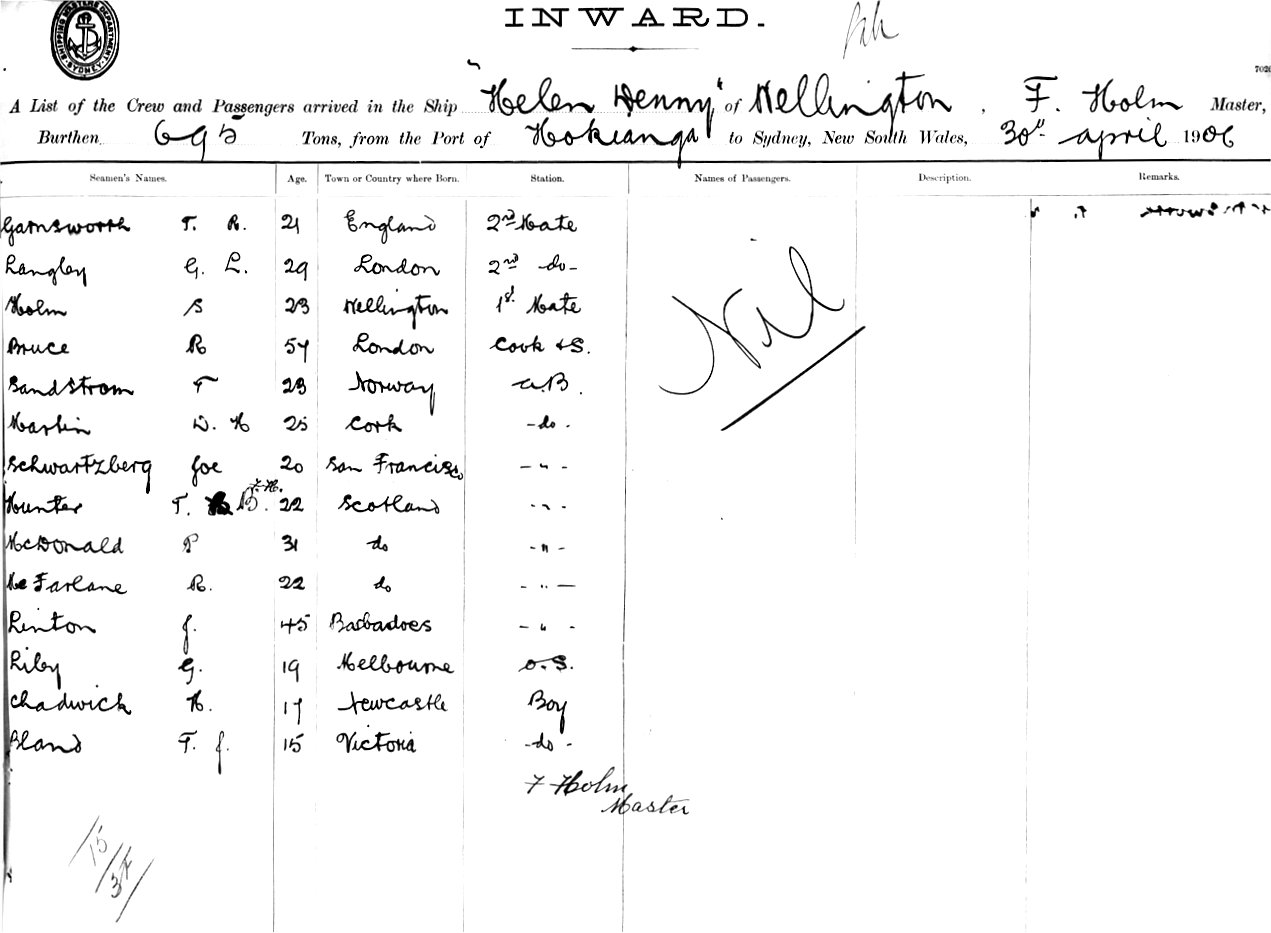 SHIPPING MASTERS DEPARTMENT. SYDNEY.
INWARD.
7026
A List of the Crew and Passengers arrived in the Ship "Helen Denny" of Wellington, F. Holm Master,
Burthen 695 Tons, from the Port of Hokianga to Sydney, New South Wales, 30th april 1906
Seamen's Names. Age. Town or Country where Born. Station. Names of Passengers. Description. Remarks.
Garnsworth T. R. 21 England 2nd Mate
Langley G. L. 29 London 2nd -do-
Holm S 23 Wellington 1st Mate
Bruce R 57 London Cook & S.
Sandstrom F 23 Norway a.B.
Martin D. H 25 Cork -do-
Schwartzberg Joe 20 San Francisco - " -
F. H.
Hunter T. B. 22 Scotland - " -
McDonald P 31 do - " -
McFarlane R. 22 do - " -
Linton J. 45 Barbadoes - " -
Riley G. 19 Melbourne O.S.
Chadwick H. 17 Newcastle Boy
Bland F. J. 15 Victoria -do-
Nil
F Holm
Master
15